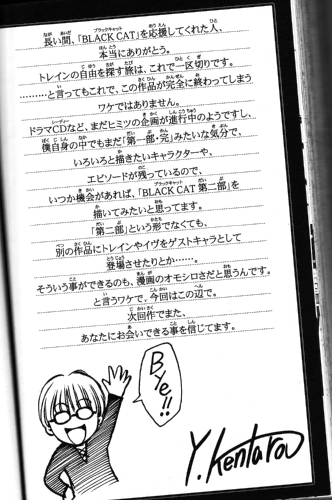 長い間、「BLACK CAT」を応援してくれた人、
本当にありがとう。
トレインの自由を探す旅は、これで一区切りです。
………と言ってもこれで、この作品が完全に終わってしまう
ワケではありません。
ドラマCDなど、まだヒミツの企画が進行中のようですし、
僕自身の中でもまだ「第一部・完」みたいな気分で、
いろいろと描きたいキャラクターや、
エピソードが残っているので、
いつか機会があれば、「BLACK CAT 第二部」を
描いてみたいと思ってます。
「第二部」という形でなくても、
別の作品にトレインやイヴをゲストキャラとして
登場させたりとか……。
そういう事ができるのも、漫画のオモシロさだと思うんです。
と言うワケで、今回はこの辺で。
次回作でまた、
あなたにお会いできる事を信じてます。
Bye!!
Y. Kentaro